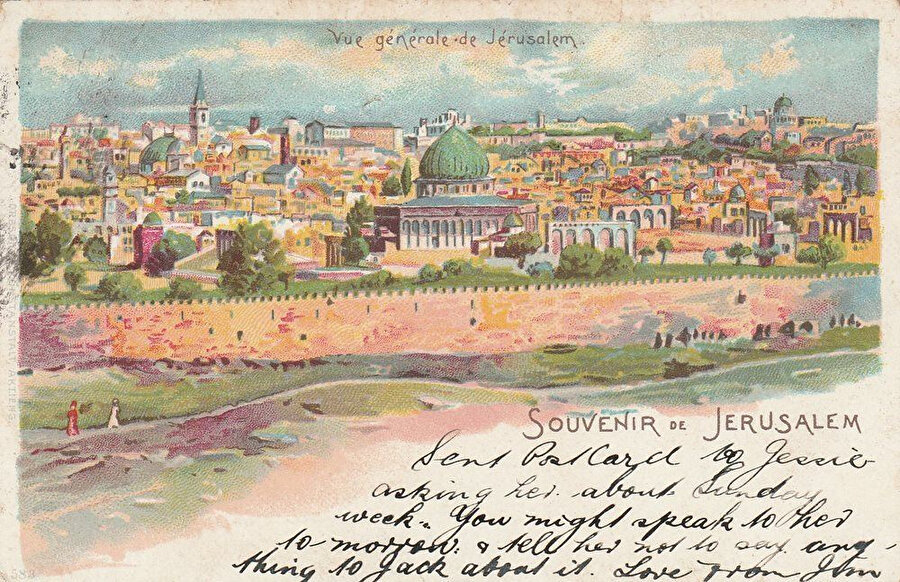 Vue générale de Jérusalem.
SOUVENIR DE JERUSALEM
Sent PostCard to Jessie
asking her about Sunday
week. You might speak to her
to-morrow. & tell her not to say any-
thing to Jack about it. Love from Jim